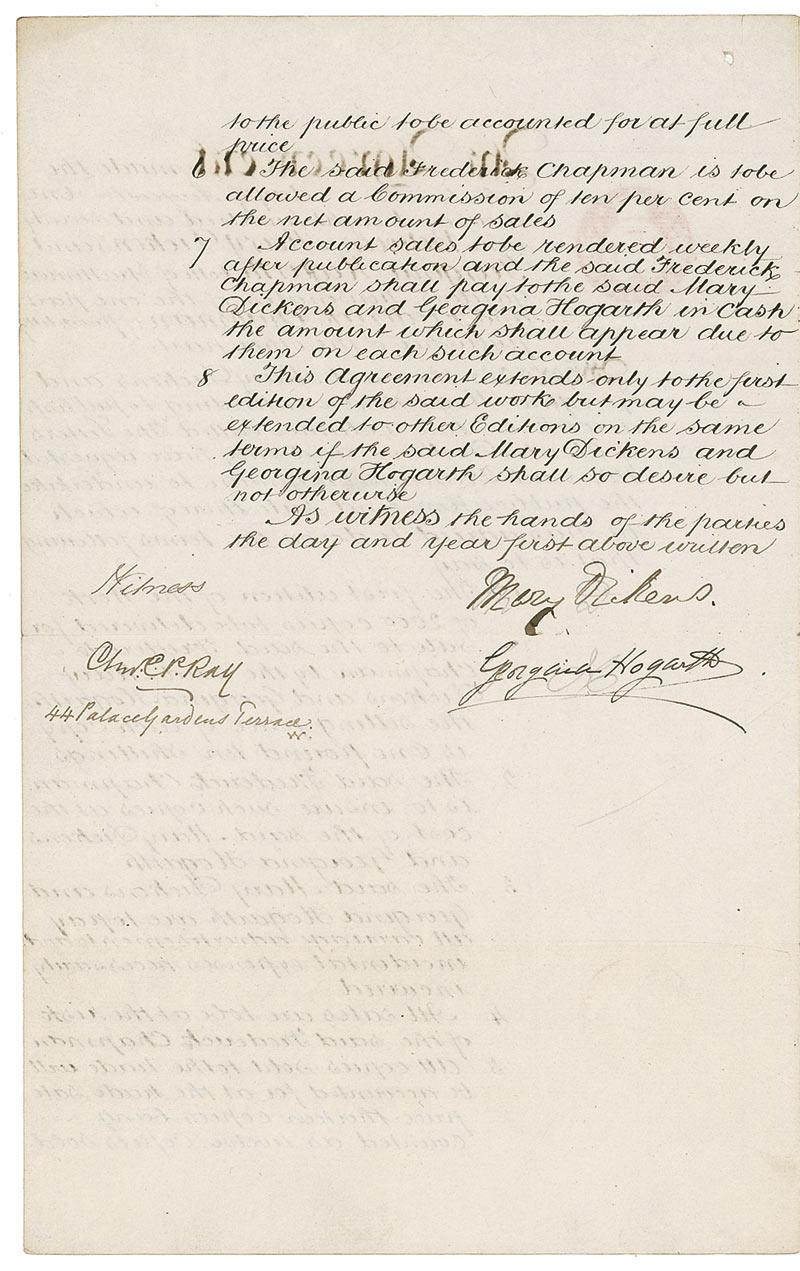 to the public to be accounted for at full
price
6 The said Frederick Chapman is to be
allowed a Commission of ten per cent on
the net amount of sales
7 Account sales to be rendered weekly
after publication and the said Frederick
Chapman shall pay to the said Mary
Dickens and Georgina Hogarth in Cash
the amount which shall appear due to
them on each such account
8 This Agreement extends only to the first
edition of the said work but may be
extended to other Editions on the same
terms if the said Mary Dickens and
Georgina Hogarth shall so desire but
not otherwise
As witness the hands of the parties
the day and year first above written
Witness
Mary Dickens.
C. P. Ray
Georgina Hogarth.
44 Palace Gardens Terrace
W.